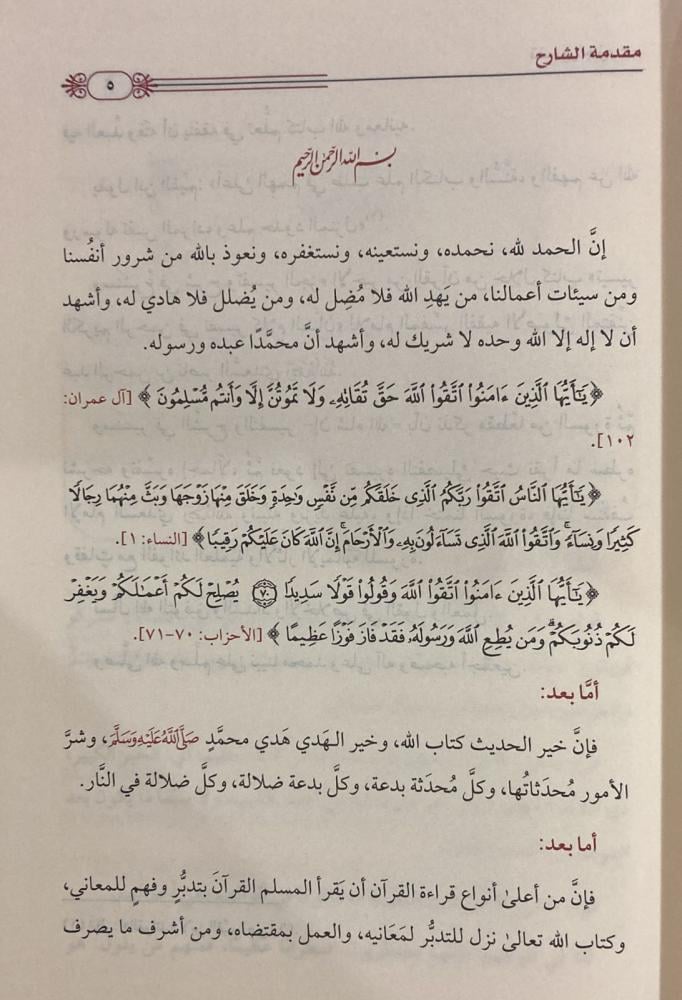 مقدمة الشارح
٥
بسم الله الرحمن الرحيم
إنَّ الحمد لله، نحمده، ونستعينه، ونستغفره، ونعوذ بالله من شرور أنفُسنا
ومن سيئات أعمالنا، من يَهدِ الله فلا مُضِل له، ومن يُضلل فلا هادي له، وأشهد
أن لا إله إلا الله وحده لا شريك له، وأشهد أنَّ محمَّدًا عبده ورسوله.
﴿يَٰٓأَيُّهَا ٱلَّذِينَ ءَامَنُوا۟ ٱتَّقُوا۟ ٱللَّهَ حَقَّ تُقَاتِهِۦ وَلَا تَمُوتُنَّ إِلَّا وَأَنتُم مُّسْلِمُونَ﴾ [آل عمران:
١٠٢].
﴿يَٰٓأَيُّهَا ٱلنَّاسُ ٱتَّقُوا۟ رَبَّكُمُ ٱلَّذِى خَلَقَكُم مِّن نَّفْسٍ وَٰحِدَةٍ وَخَلَقَ مِنْهَا زَوْجَهَا وَبَثَّ مِنْهُمَا رِجَالًا
كَثِيرًا وَنِسَآءً ۚ وَٱتَّقُوا۟ ٱللَّهَ ٱلَّذِى تَسَآءَلُونَ بِهِۦ وَٱلْأَرْحَامَ ۚ إِنَّ ٱللَّهَ كَانَ عَلَيْكُمْ رَقِيبًا﴾ [النساء: ١].
﴿يَٰٓأَيُّهَا ٱلَّذِينَ ءَامَنُوا۟ ٱتَّقُوا۟ ٱللَّهَ وَقُولُوا۟ قَوْلًا سَدِيدًا ٧٠ يُصْلِحْ لَكُمْ أَعْمَٰلَكُمْ وَيَغْفِرْ
لَكُمْ ذُنُوبَكُمْ ۗ وَمَن يُطِعِ ٱللَّهَ وَرَسُولَهُۥ فَقَدْ فَازَ فَوْزًا عَظِيمًا﴾ [الأحزاب: ٧٠-٧١].
أمَّا بعد:
فإنَّ خير الحديث كتاب الله، وخير الـهَدي هَدي محمَّدٍ صَلَّى اللَّهُ عَلَيْهِ وَسَلَّمَ، وشرَّ
الأمور مُحدَثاتُها، وكلَّ مُحدَثة بدعة، وكلَّ بدعة ضلالة، وكلَّ ضلالة في النَّار.
أما بعد:
فإنَّ من أعلىٰ أنواع قراءة القرآن أن يَقرأ المسلم القرآنَ بتدبُّرٍ وفهمٍ للمعاني،
وكتاب الله تعالىٰ نزل للتدبُّر لمَعَانيه، والعمل بمقتضاه، ومن أشرف ما يصرف